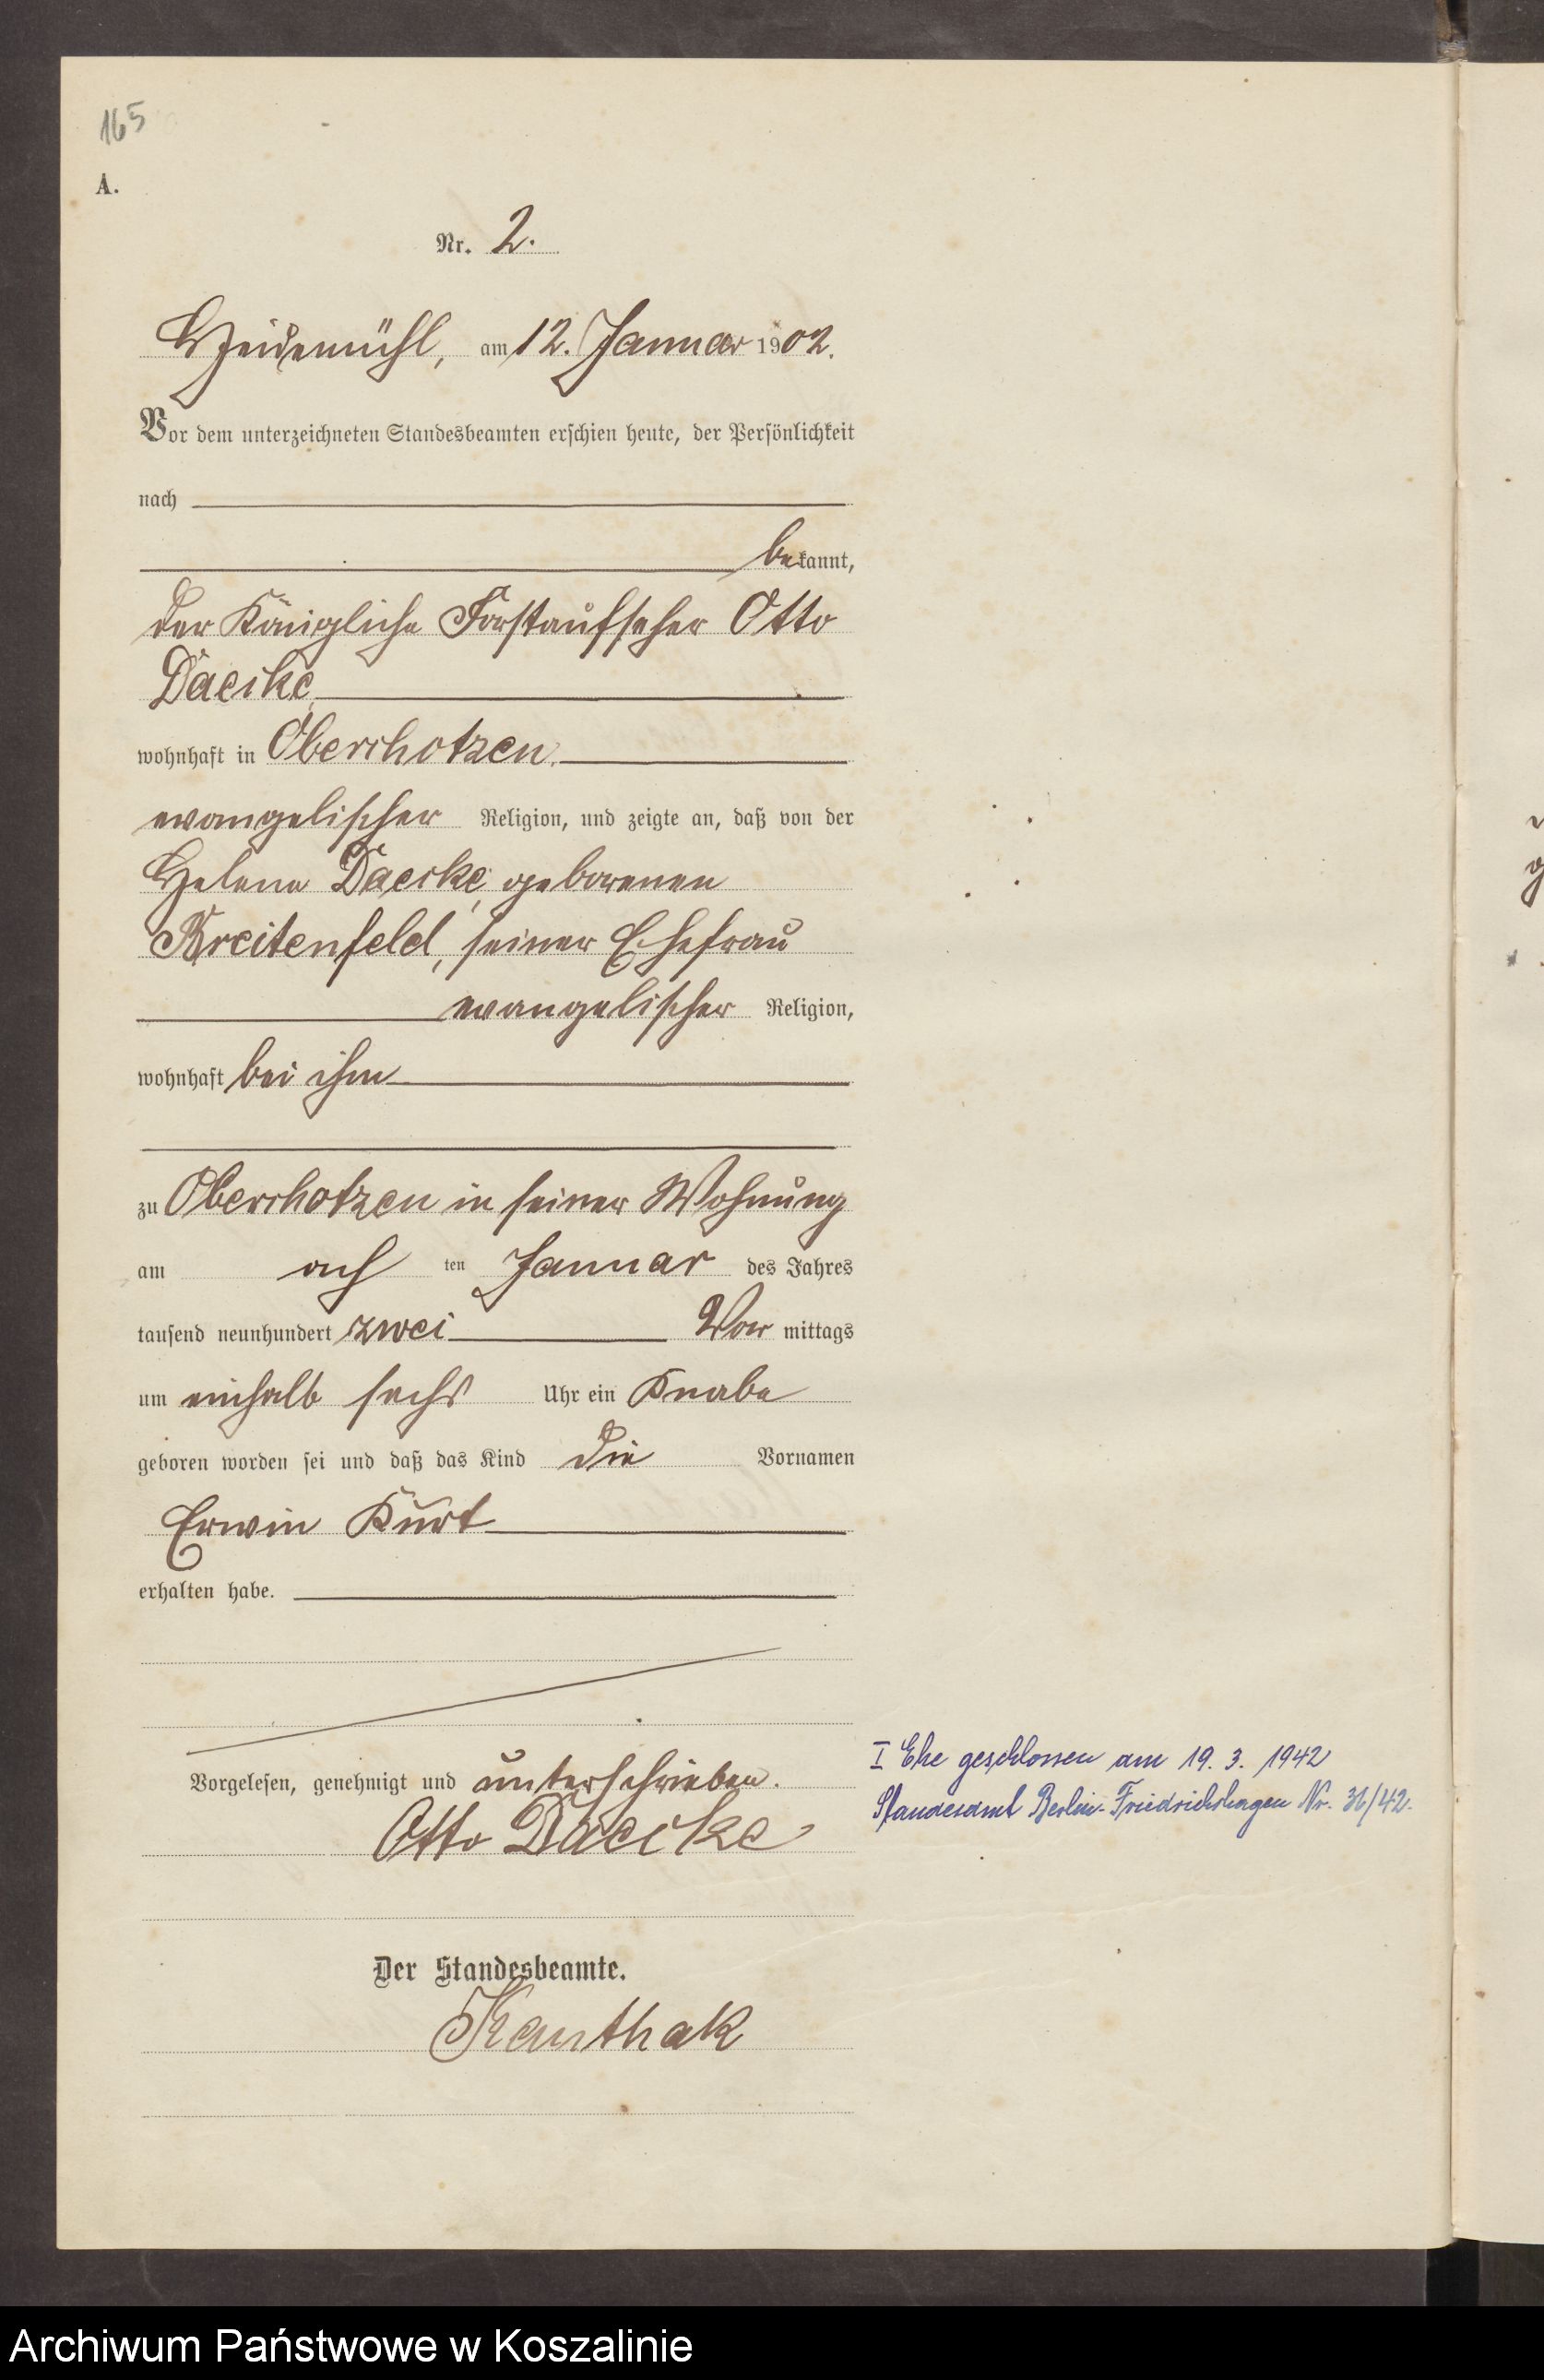 165
A.
Nr. 2.
Heidemühl, am 12. Januar 1902.
Vor dem unterzeichneten Standesbeamten erschien heute, der Persönlichkeit
nach
bekannt,
der Königliche Forstaufseher Otto
Daeike,
wohnhaft in Oberchotzen,
evangelischer Religion, und zeigte an, daß von der
Helene Daecke, geborenen
Breitenfeld, seiner Ehefrau
evangelischer Religion,
wohnhaft bei ihm
zu Oberchotzen in seiner Wohnung
am ach ten Januar des Jahres
tausend neunhundert zwei Vor mittags
um einhalb sechs Uhr ein Knabe
geboren worden sei und daß das Kind die Vornamen
Erwin Kurt
erhalten habe.
Vorgelesen, genehmigt und unterschrieben.
Otto Daecke
I Ehe geschlossen am 19. 3. 1942
Standesamt Berlin-Friedrichshagen Nr. 36/42.
Der Standesbeamte.
Kanthak
Archiwum Państwowe w Koszalinie